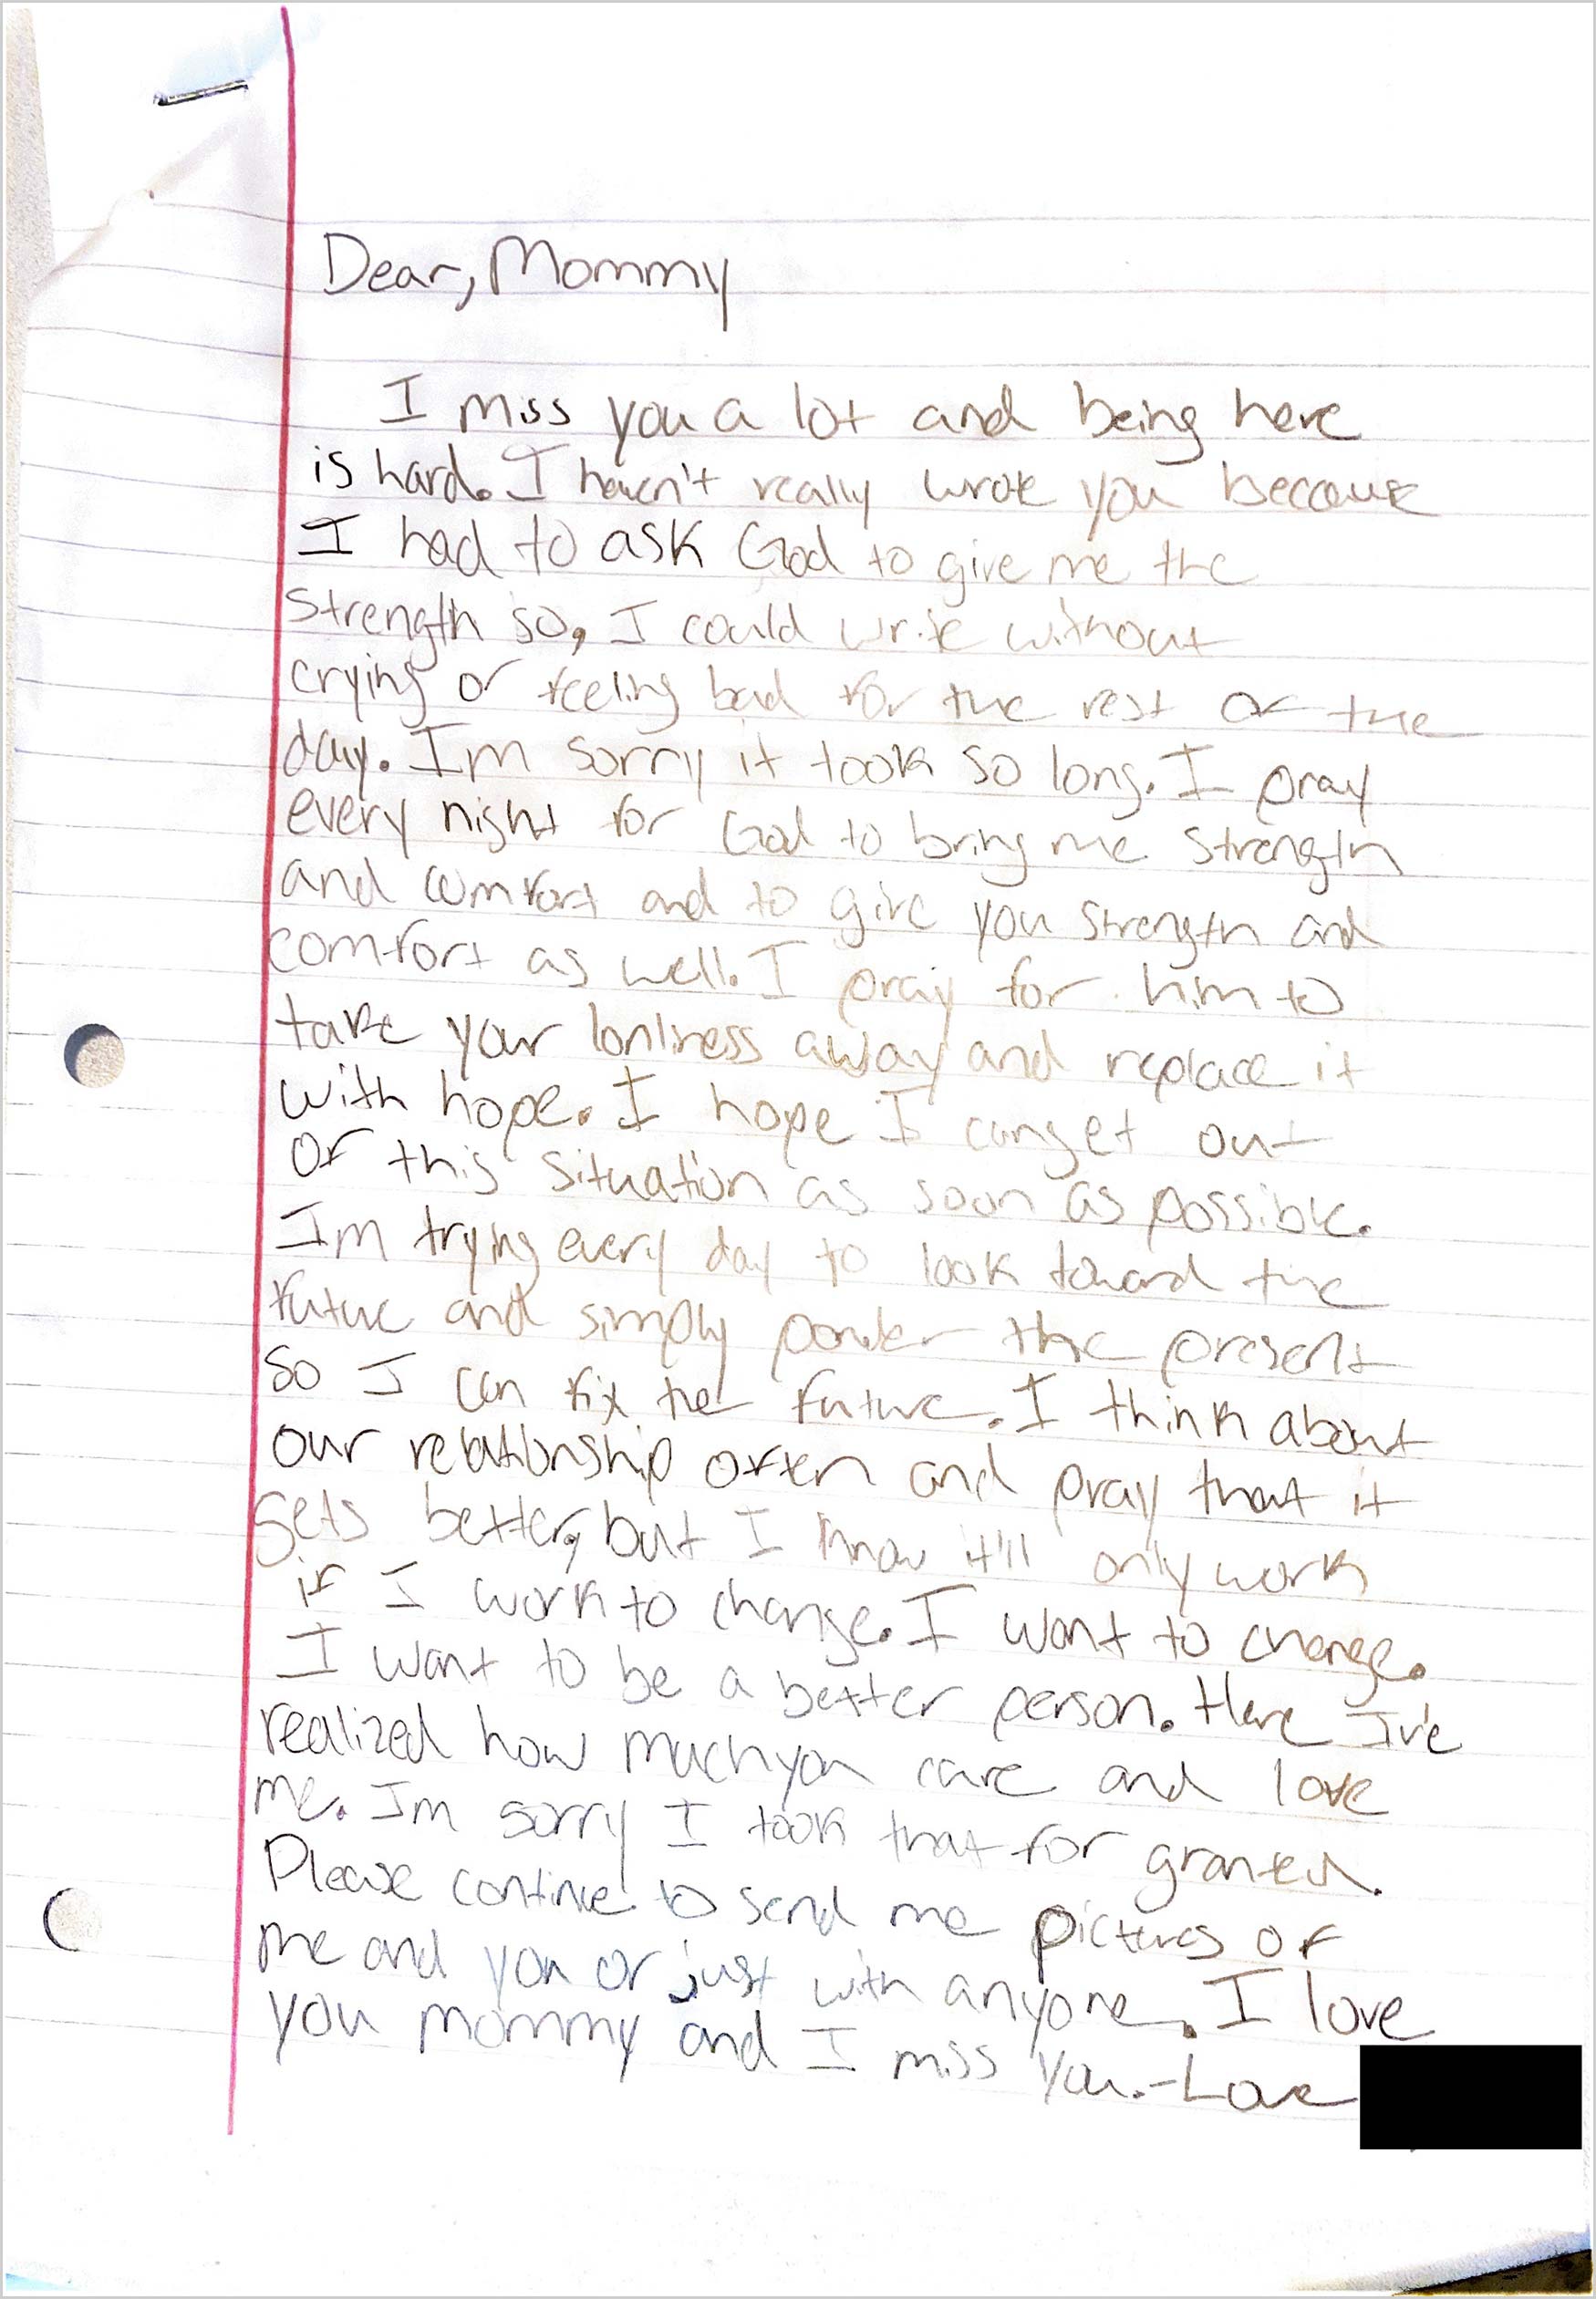 Dear, Mommy
I miss you a lot and being here
is hard. I haven't really wrote you because
I had to ask God to give me the
strength so, I could write without
crying or feeling bad for the rest of the
day. Im sorry it took so long. I pray
every night for God to bring me strength
and comfort and to give you strength and
comfort as well. I pray for him to
take your lonliness away and replace it
with hope. I hope I can get out
of this situation as soon as possible.
Im trying every day to look toward the
future and simply ponder the present
so I can fix the future. I think about
our relationship often and pray that it
gets better, but I know it'll only work
if I work to change. I want to change.
I want to be a better person. Here I've
realized how much you care and love
me. Im sorry I took that for granted.
Please continue to send me pictures of
me and you or just with anyone. I love
you mommy and I miss you. -Love